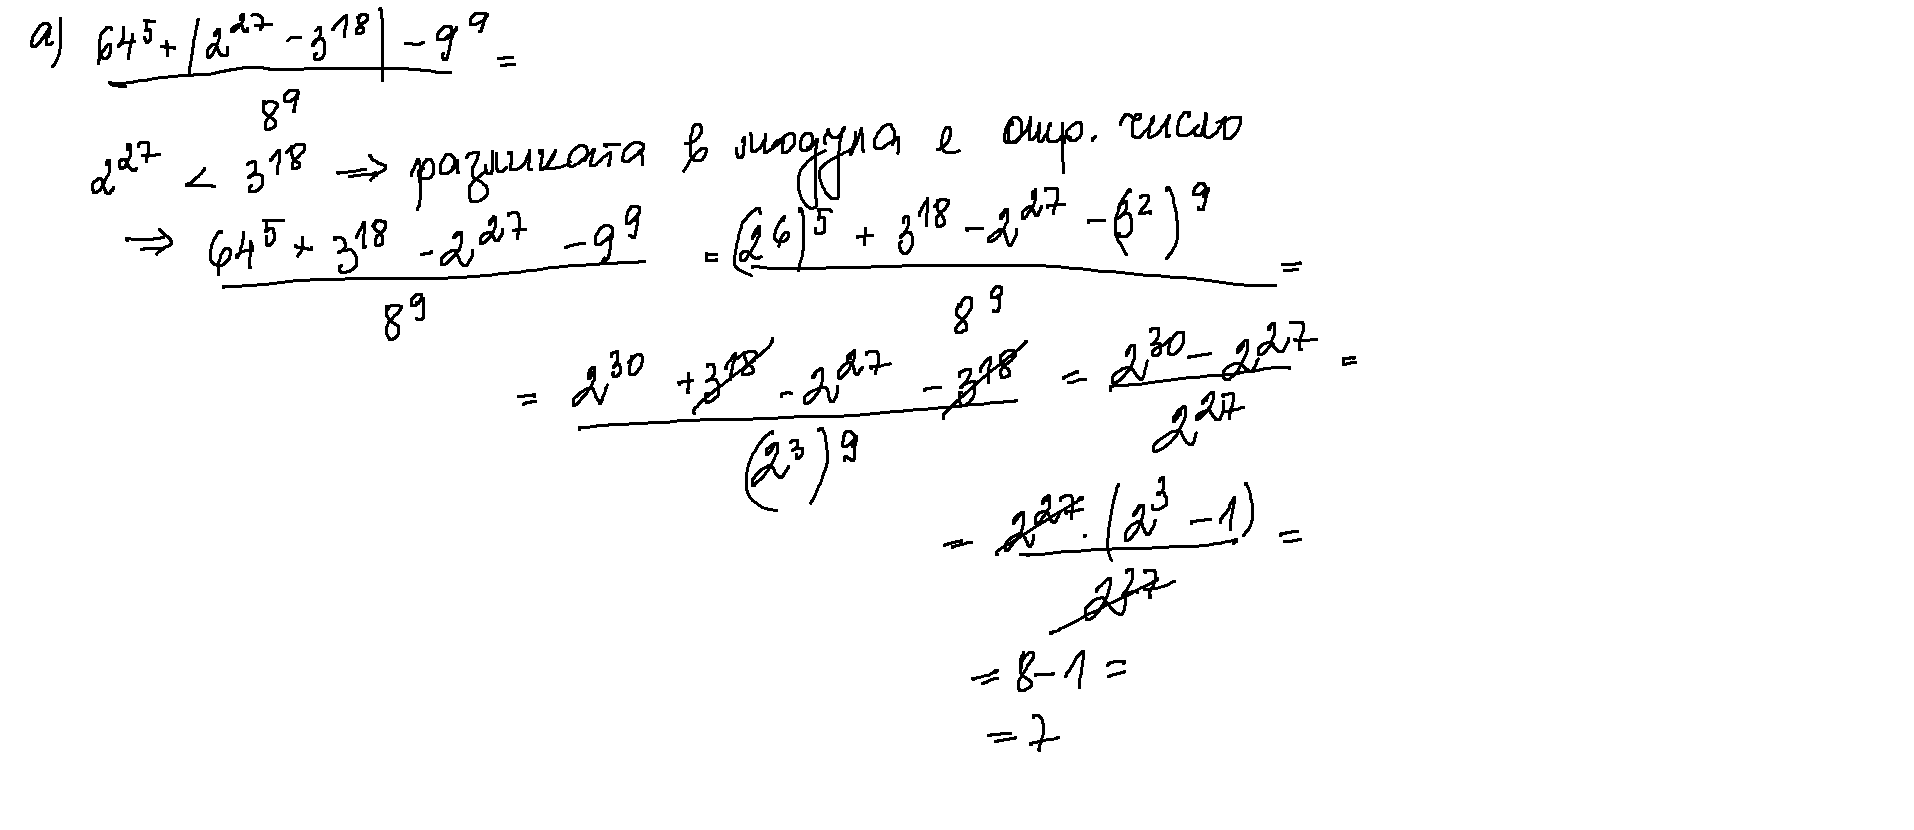 а) (64⁵ + |2²⁷ - 3¹⁸| - 9⁹) / 8⁹ =
2²⁷ < 3¹⁸ ⇒ разликата в модула е отр. число
⇒ (64⁵ + 3¹⁸ - 2²⁷ - 9⁹) / 8⁹ = ((2⁶)⁵ + 3¹⁸ - 2²⁷ - (3²)⁹) / 8⁹ =
= (2³⁰ + 3¹⁸ - 2²⁷ - 3¹⁸) / (2³)⁹ = (2³⁰ - 2²⁷) / 2²⁷ =
= (2²⁷ . (2³ - 1)) / 2²⁷ =
= 8 - 1 =
= 7